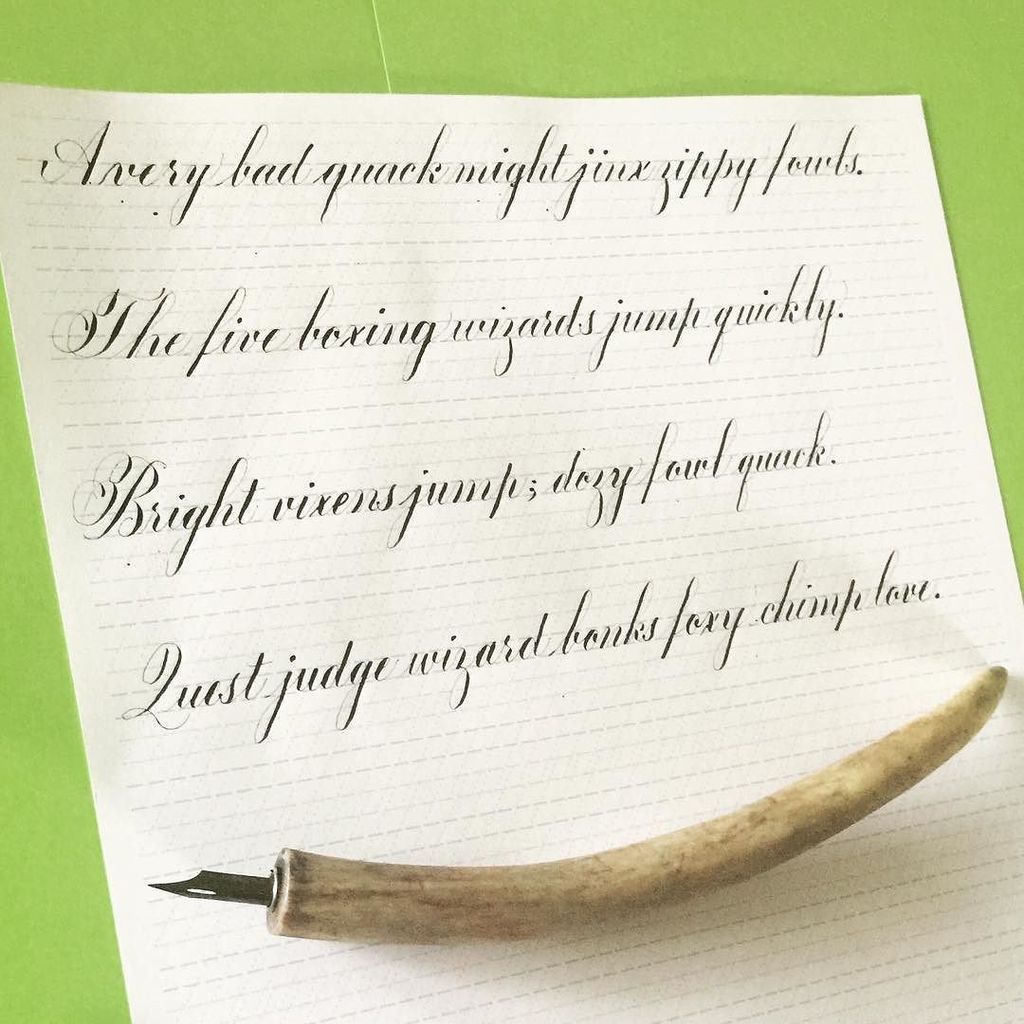 A very bad quack might jinx zippy fowls.
The five boxing wizards jump quickly.
Bright vixens jump; dozy fowl quack.
Quest judge wizard bonks foxy chimp love.